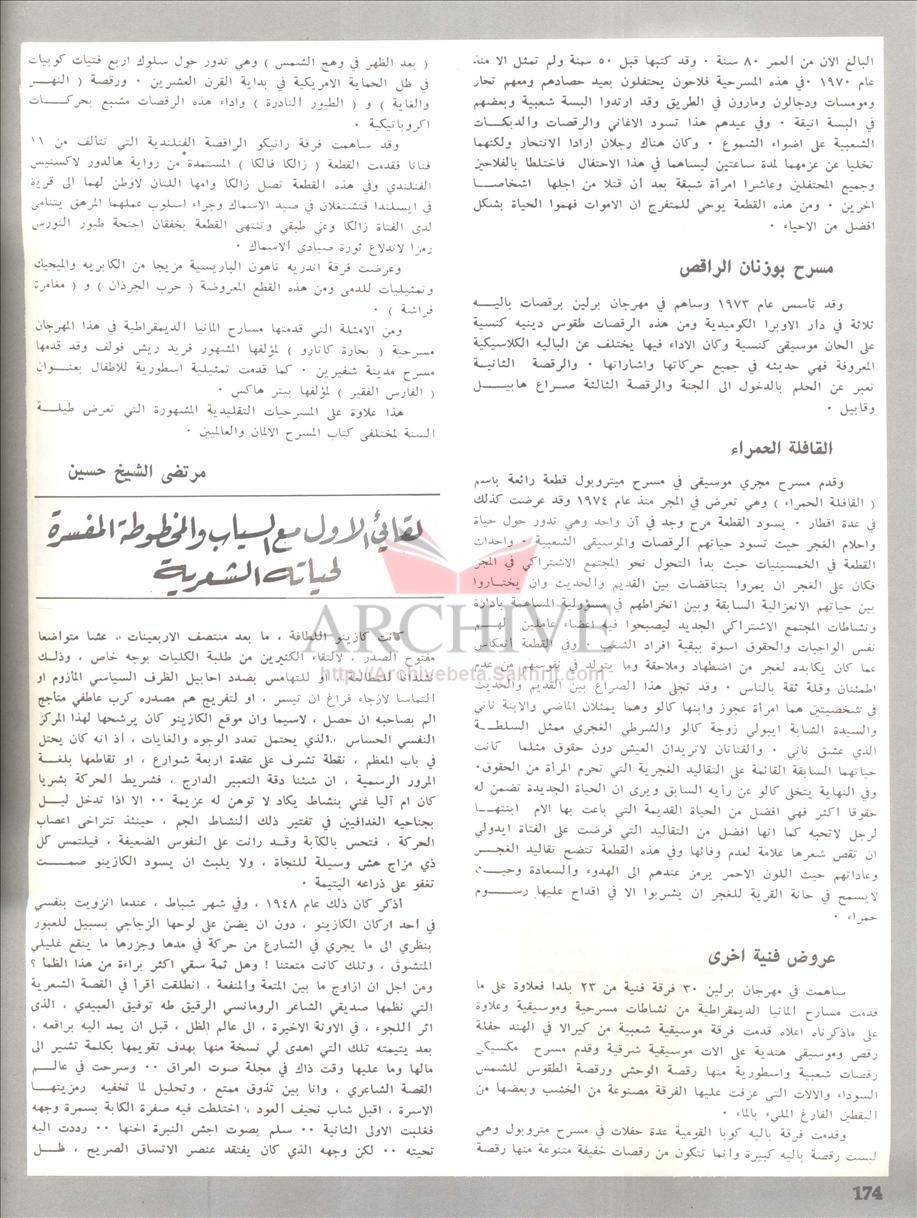 البالغ الان من العمر ٨٠ سنة ٠ وقد كتبها قبل ٥٠ سنة ولم تمثل الا منذ
عام ١٩٧٠ ٠ في هذه المسرحية فلاحون يحتفلون بعيد حصادهم ومعهم تجار
ومومسات ودجالون ومارون في الطريق وقد ارتدوا البسة شعبية وبعضهم
في البسة انيقة ٠ وفي عيدهم هذا تسود الاغاني والرقصات والدبكات
الشعبية على اضواء الشموع ٠ وكان هناك رجلان ارادا الانتحار ولكنهما
تخليا عن عزمهما لمدة ساعتين ليساهما في هذا الاحتفال فاختلطا بالفلاحين
وجميع المحتفلين وعاشرا امرأة شبقة بعد أن قتلا من اجلها اشخاصا
اخرين ٠ ومن هذه القطعة يوحي للمتفرج ان الاموات فهموا الحياة بشكل
افضل من الاحياء ٠
مسرح بوزنان الراقص
وقد تأسس عام ١٩٧٣ وساهم في مهرجان برلين برقصات باليه
ثلاثة في دار الاوبرا الكوميدية ومن هذه الرقصات طقوس دينيه كنسية
على الحان موسيقى كنسية وكان الاداء فيها يختلف عن الباليه الكلاسيكية
المعروفة فهي حديثه في جميع حركاتها واشاراتها ٠ والرقصة الثانية
تعبر عن الحلم بالدخول الى الجنة والرقصة الثالثة صراع هابيل
وقابيل ٠
القافلة الحمراء
وقدم مسرح مجري موسيقي في مسرح ميتروبول قطعة رائعة باسم
( القافلة الحمراء ) وهي تعرض في المجر منذ عام ١٩٧٤ وقد عرضت كذلك
في عدة اقطار ٠ يسود القطعة مرح وجد في آن واحد وهي تدور حول حياة
واحلام الغجر حيث تسود حياتهم الرقصات والموسيقى الشعبية ٠ واحداث
القطعة في الخمسينيات حيث بدأ التحول نحو المجتمع الاشتراكي في المجر
فكان على الغجر ان يمروا بتناقضات بين القديم والحديث وان يختاروا
بين حياتهم الانعزالية السابقة وبين انخراطهم في مسؤولية المساهمة بادارة
ونشاطات المجتمع الاشتراكي الجديد ليصبحوا فيه اعضاء عاملين لهم
نفس الواجبات والحقوق اسوة ببقية افراد الشعب ٠ وفي القطعة انعكاس
عما كان يكابده لغجر من اضطهاد وملاحقة وما يتولد في نفوسهم من عدم
اطمئنان وقلة ثقة بالناس ٠ وقد تجلى هذا الصراع بين القديم والحديث
في شخصيتين هما امرأة عجوز وابنها كالو وهما يمثلان الماضي والابنة ناني
والسيدة الشابة ايبولي زوجة كالو والشرطي الغجري ممثل السلطة
الذي عشق ناني ٠ والفتاتان لاتريدان العيش دون حقوق مثلما كانت
حياتهما السابقة القائمة على التقاليد الغجرية التي تحرم المرأة من الحقوق٠
وفي النهاية يتخلى كالو عن رأيه السابق ويرى ان الحياة الجديدة تضمن له
حقوقا اكثر فهي افضل من الحياة القديمة التي باعت بها الام ابنتها
لرجل لاتحبه كما انها افضل من التقاليد التي فرضت على الفتاة ايدولي
ان تقص شعرها علامة لعدم وفائها وفي هذه القطعة تتضح تقاليد الغجر
وعاداتهم حيث اللون الاحمر يرمز عندهم الى الهدوء والسعادة وحيث
لايسمح في حانة القرية للغجر ان يشربوا الا في اقداح عليها رسوم
حمراء ٠
عروض فنية اخرى
ساهمت في مهرجان برلين ٣٠ فرقة فنية من ٢٣ بلدا فعلاوة على ما
قدمت مسارح المانيا الديمقراطية من نشاطات مسرحية وموسيقية وعلاوة
على ماذكرناه اعلاه قدمت فرقة موسيقية شعبية من كيرالا في الهند حفلة
رقص وموسيقى هندية على الات موسيقية شرقية وقدم مسرح مكسيكي
رقصات شعبية واسطورية منها رقصة الوحش ورقصة الطقوس للشمس
السوداء والالات التي عزفت عليها الفرقة مصنوعة من الخشب وبعضها من
اليقطين الفارغ المليء بالماء ٠
وقدمت فرقة باليه كوبا القومية عدة حفلات في مسرح متروبول وهي
ليست رقصة باليه كبيرة وانما تتكون من رقصات خفيفة متنوعة منها رقصة
( بعد الظهر في وهج الشمس ) وهي تدور حول سلوك اربع فتيات كوبيات
في ظل الحماية الامريكية في بداية القرن العشرين ٠ ورقصة ( النهر
والغابة ) و ( الطيور النادرة ) واداء هذه الرقصات مشبع بحركات
اكروباتيكية ٠
وقد ساهمت فرقة راتيكو الراقصة الفنلندية التي تتألف من ١١
فنانا فقدمت القطعة ( زالكا فالكا ) المستمدة من رواية هالدور لاكسنيس
الفنلندي وفي هذه القطعة تصل زالكا وامها اللتان لاوطن لهما الى قرية
في ايسلندا فتشتغلان في صيد الاسماك وجراء اسلوب عملهما المرهق يتنامى
لدى الفتاة زالكا وعي طبقي وتنتهي القطعة بخفقان اجنحة طيور النورس
رمزا لاندلاع ثورة صيادي الاسماك ٠
وعرضت فرقة اندريه تاهون الباريسية مزيجا من الكابريه والميجيك
وتمثيليات للدمى ومن هذه القطع المعروضة ( حرب الجرذان ) و ( مغامرة
فراشة ) ٠
ومن الامثلة التي قدمتها مسارح المانيا الديمقراطية في هذا المهرجان
مسرحية ( بحارة كاتارو ) لمؤلفها المشهور فريد ريش فولف وقد قدمها
مسرح مدينة شفيرين ٠ كما قدمت تمثيلية اسطورية للاطفال بعنوان
( الفارس الفقير ) لمؤلفها بيتر هاكس ٠
هذا علاوة على المسرحيات التقليدية المشهورة التي تعرض طيلة
السنة لمختلفى كتاب المسرح الالمان والعالميين ٠
مرتضى الشيخ حسين
لقائي الاول مع السياب والمخطوطة المفسرة
لحياته الشعرية
كانت كازينو اللطافة ، ما بعد منتصف الاربعينات ، عشا متواضعا
مفتوح الصدر ، لالتقاء الكثيرين من طلبة الكليات بوجه خاص ، وذلك
للمطالعة او للتهامس بصدد احابيل الظرف السياسي المأزوم او
التماسا لازجاء فراغ ان تيسر ، او لتفريج هم مصدره كرب عاطفي متأجج
الم بصاحبه ان حصل ، لاسيما وان موقع الكازينو كان يرشحها لهذا المركز
النفسي الحساس ، الذي يحتمل تعدد الوجوه والغايات ، اذ انه كان يحتل
في باب المعظم ، نقطة تشرف على عقدة اربعة شوارع ، او تقاطعها بلغة
المرور الرسمية ، ان شئنا دقة التعبير الدارج ، فشريط الحركة بشريا
كان ام آليا غني بنشاط يكاد لا توهن له عزيمة ٠٠ الا اذا تدخل ليل
بجناحيه الغدافيين في تفتير ذلك النشاط الجم ، حينئذ تتراخى اعصاب
الحركة ، فتحس بالكآبة وقد رانت على النفوس الضعيفة ، فيلتمس كل
ذي مزاج هش وسيلة للنجاة ، ولا يلبث ان يسود الكازينو صمت
تغفو على ذراعه اليتيمة ٠
اذكر كان ذلك عام ١٩٤٨ ، وفي شهر شباط ، عندما انزويت بنفسي
في أحد اركان الكازينو ، دون ان يضن على لوحها الزجاجي بسبيل للعبور
بنظري الى ما يجري في الشارع من حركة في مدها وجزرها ما ينقع غليلي
المتشوق ، وتلك كانت متعتنا ! وهل ثمة سقي اكثر براءة من هذا الظمأ ؟
ومن اجل ان ازاوج ما بين المتعة والمنفعة ، انطلقت أقرأ في القصة الشعرية
التي نظمها صديقي الشاعر الرومانسي الرقيق طه توفيق العبيدي ، الذى
اثر اللجوء ، في الاونة الاخيرة ، الى عالم الظل ، قبل ان يمد اليه براقعه ،
بعد يتيمته تلك التي اهدى لي نسخة منها بهدف تقويمها بكلمة تشير الى
مالها وما عليها وقت ذاك في مجلة صوت العراق ٠٠ وسرحت في عالم
القصة الشاعري ، وانا بين تذوق ممتع ، وتحليل لما تخفيه رمزيتها
الاسرة ، اقبل شاب نحيف العود ، اختلطت فيه صفرة الكابة بسمرة وجهه
فغلبت الاولى الثانية ٠٠ سلم بصوت اجش النبرة اخنها ٠٠ رددت اليه
تحيته ٠٠ لكن وجهه الذي كان يفتقد عنصر الاتساق الصريح ، ظل
ARCHIVE
http://Archivebeta.Sakhrit.com
174